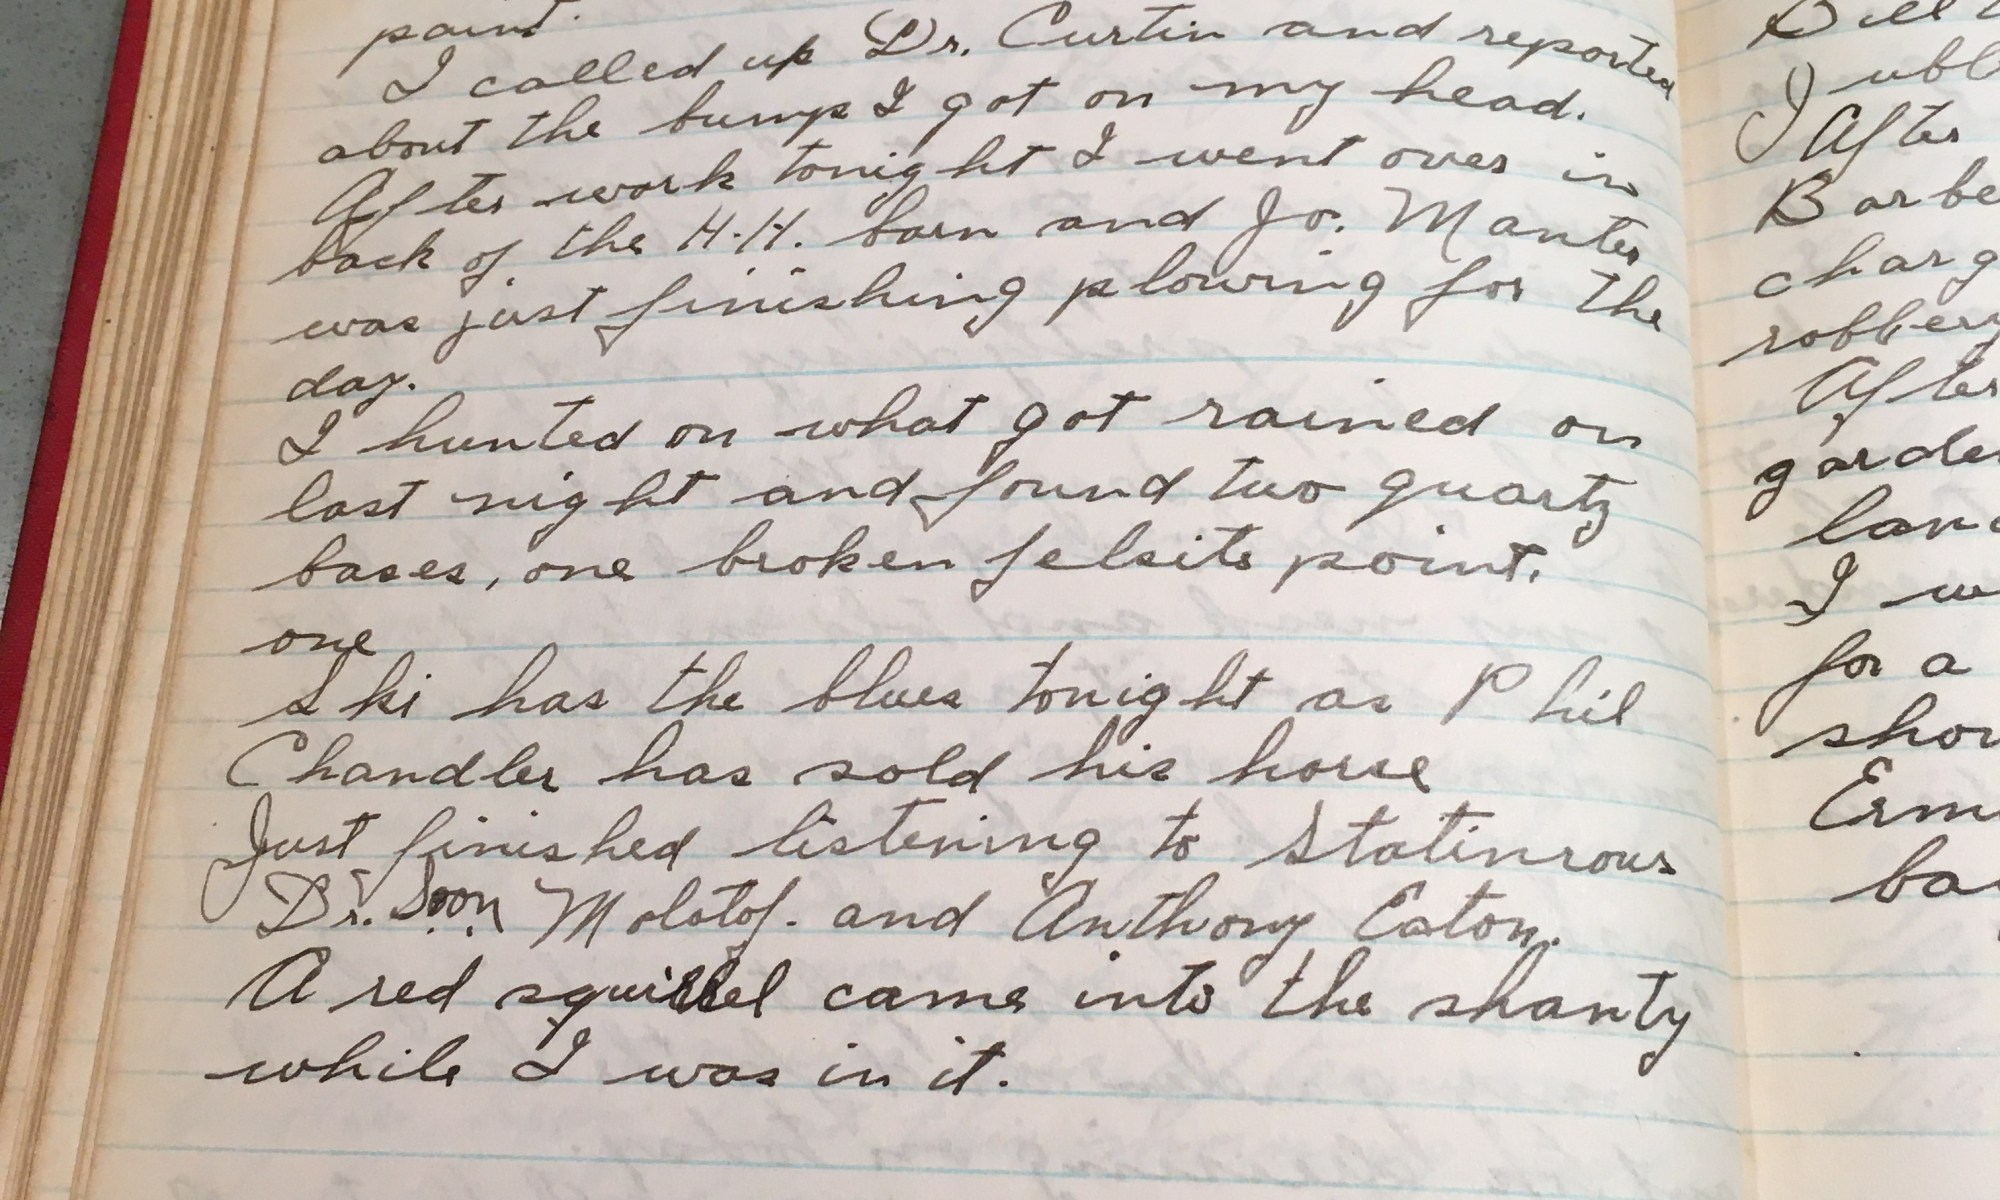 point.
I called up Dr. Curtin and reported
about the bump I got on my head.
After work tonight I went over in
back of the H.H. barn and Jo. Manter
was just finishing plowing for the
day.
I hunted on what got rained on
last night and found two quartz
bases, one broken felsite point.
one
Ski has the blues tonight as Phil
Chandler has sold his horse
Just finished listening to Statinrous
Dr. Soon Molotof. and Anthony Eaton.
A red squirrel came into the shanty
while I was in it.
After
Barbe
charg
robbery
After
garden
land
I w
for a
show
Erm
ba